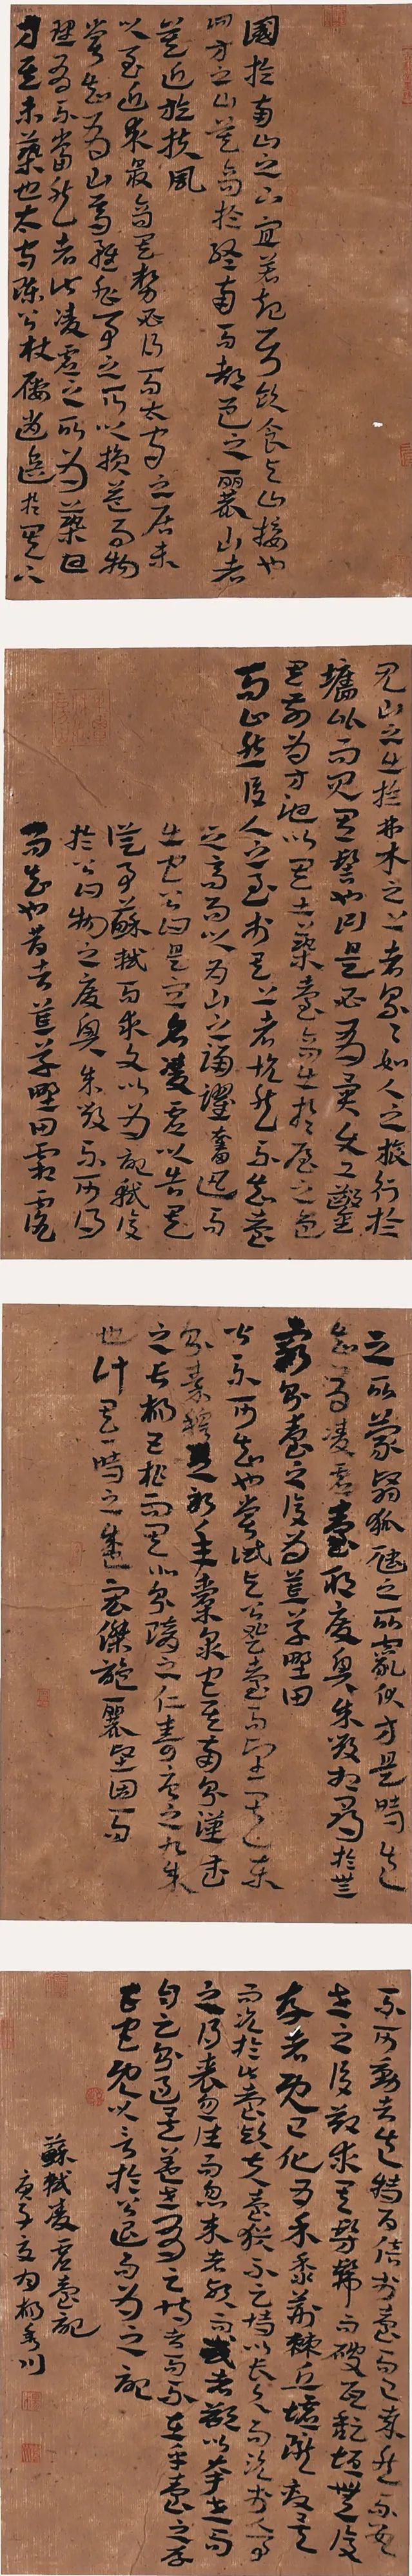 國於南山之下宜若起居飲食與山接也
四方之山莫高於終南而都邑之麗山者
莫近於扶風
以至近求最高其勢必得而太守之居未
嘗知有山焉雖非事之所以損益而物
理有不當然者此凌虛之所為築也
方其未築也太守陳公杖屨逍遙於其下
見山之出於林木之上者纍纍如人之旅行於
墻外而見其髻也曰是必有異使工鑿
其前為方池以其土築臺高出於屋之簷
而止然後人之至於其上者怳然不知臺
之高而以為山之踴躍奮迅而
出也公曰是宜名凌虛以告其
從事蘇軾而求文以為記軾復
於公曰物之廢興成毀不可得
而知也昔者荒草野田霜露
之所蒙翳狐虺之所竄伏方是時豈
知有凌虛臺耶廢興成毀相尋於無
窮則臺之復為荒草野田
皆不可知也嘗試與公登臺而望其東
則秦穆之祈年橐泉也其南則漢武
之長楊五柞而其北則隋之仁壽唐之九成
也計其一時之盛宏傑詭麗堅固而
不可動者豈特百倍於臺而已哉然而數
世之後欲求其髣髴而破瓦頹垣無復
存者既已化為禾黍荊棘丘墟隴畝矣
而況於此臺歟夫臺猶不足恃以長久而況於人事
之得喪忽往而忽來者歟而或者欲以夸世而
自足則過矣蓋世有足恃者而不在乎臺之存
亡也既以言於公退而為之記
蘇軾凌虛臺記
庚子夏月楊秀川